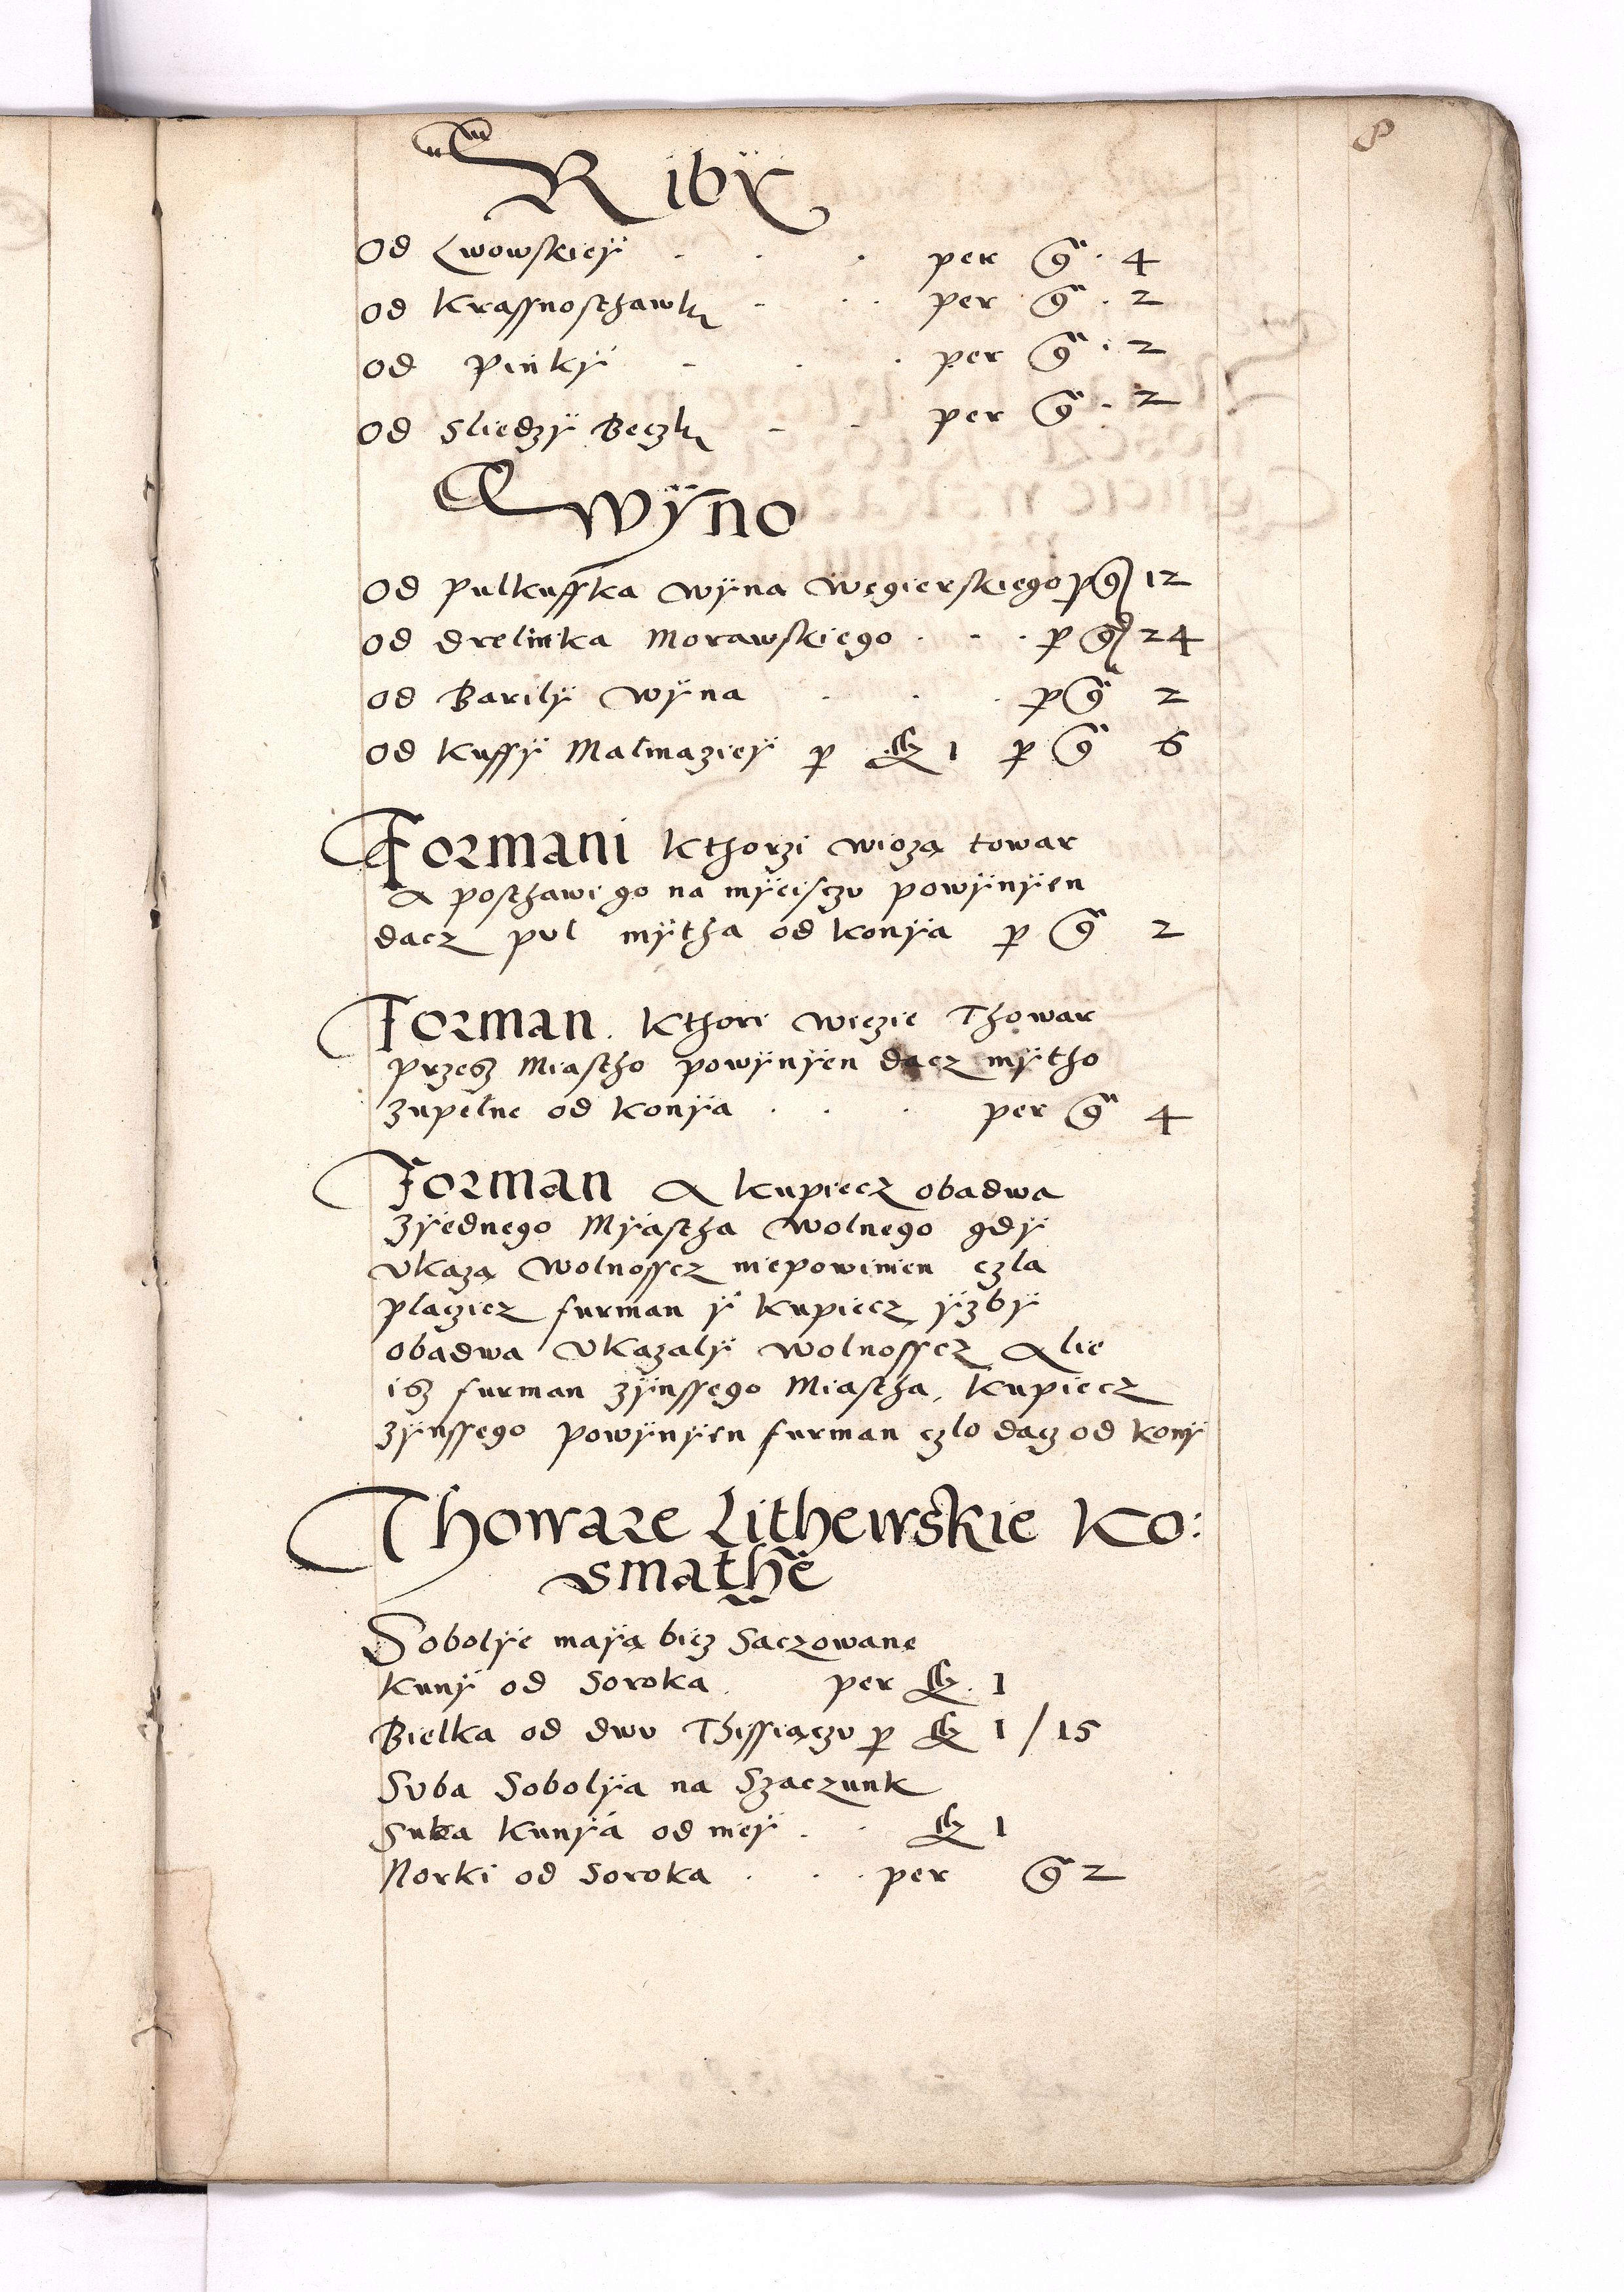 8
Ribÿ
Od Lwowskieÿ . . . per gr . 4
od Krassnosthawky . . . per gr . 2
od Pinkÿ . . . per gr . 2
od Sliedzÿ Beczky . . per gr . 2
Wÿno
Od pulkuffka wÿna Węgierskiego p gr 12
od drelinka Morawskiego . . . p gr 24
od Barilÿ wÿna . . . p gr 2
od Kuffÿ Malmazieÿ p 1 p gr 6
Formani Kthorzi wiozą towar
A posthawi go na mÿeisczu powÿnÿen
dacz pul mÿtha od konÿa p gr 2
Forman . Kthori wiezie Thowar
przesz Miastho powÿnÿen dacz mÿtho
zupelne od konÿa . . . per gr 4
Forman A kupiecz obadwa
zÿednego Mÿastha wolnego gdÿ
vkazą wolnoscz niepowinien czla
placzicz furman ÿ kupiecz ÿzbÿ
obadwa vkazalÿ wolnoscz Alie
isz furman zÿnssego Miastha, kupiecz
zÿnssego powÿnÿen furman czlo dacz od konÿ
Thoware Lithewskie Ko:
smathe
Sobolÿe maÿą bicz Saczowane
Kunÿ od Soroka . per . 1
Bielka od dwu Thissiączu p 1 / 15
Suba Sobolÿa na Szaczunk
Suba Kunÿa od nieÿ . . 1
Norki od Soroka . . . per gr 2